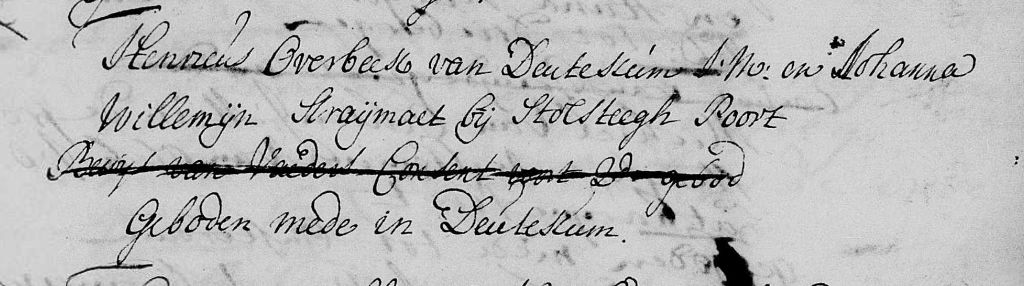 Henricus Overbeek van Deutekum J: M: en Johanna
Willemijn Straijmaet bij Tolsteegh Poort
Bewijs van Vaeders Consent voor 2de gebod
Geboden mede in Deutekum.